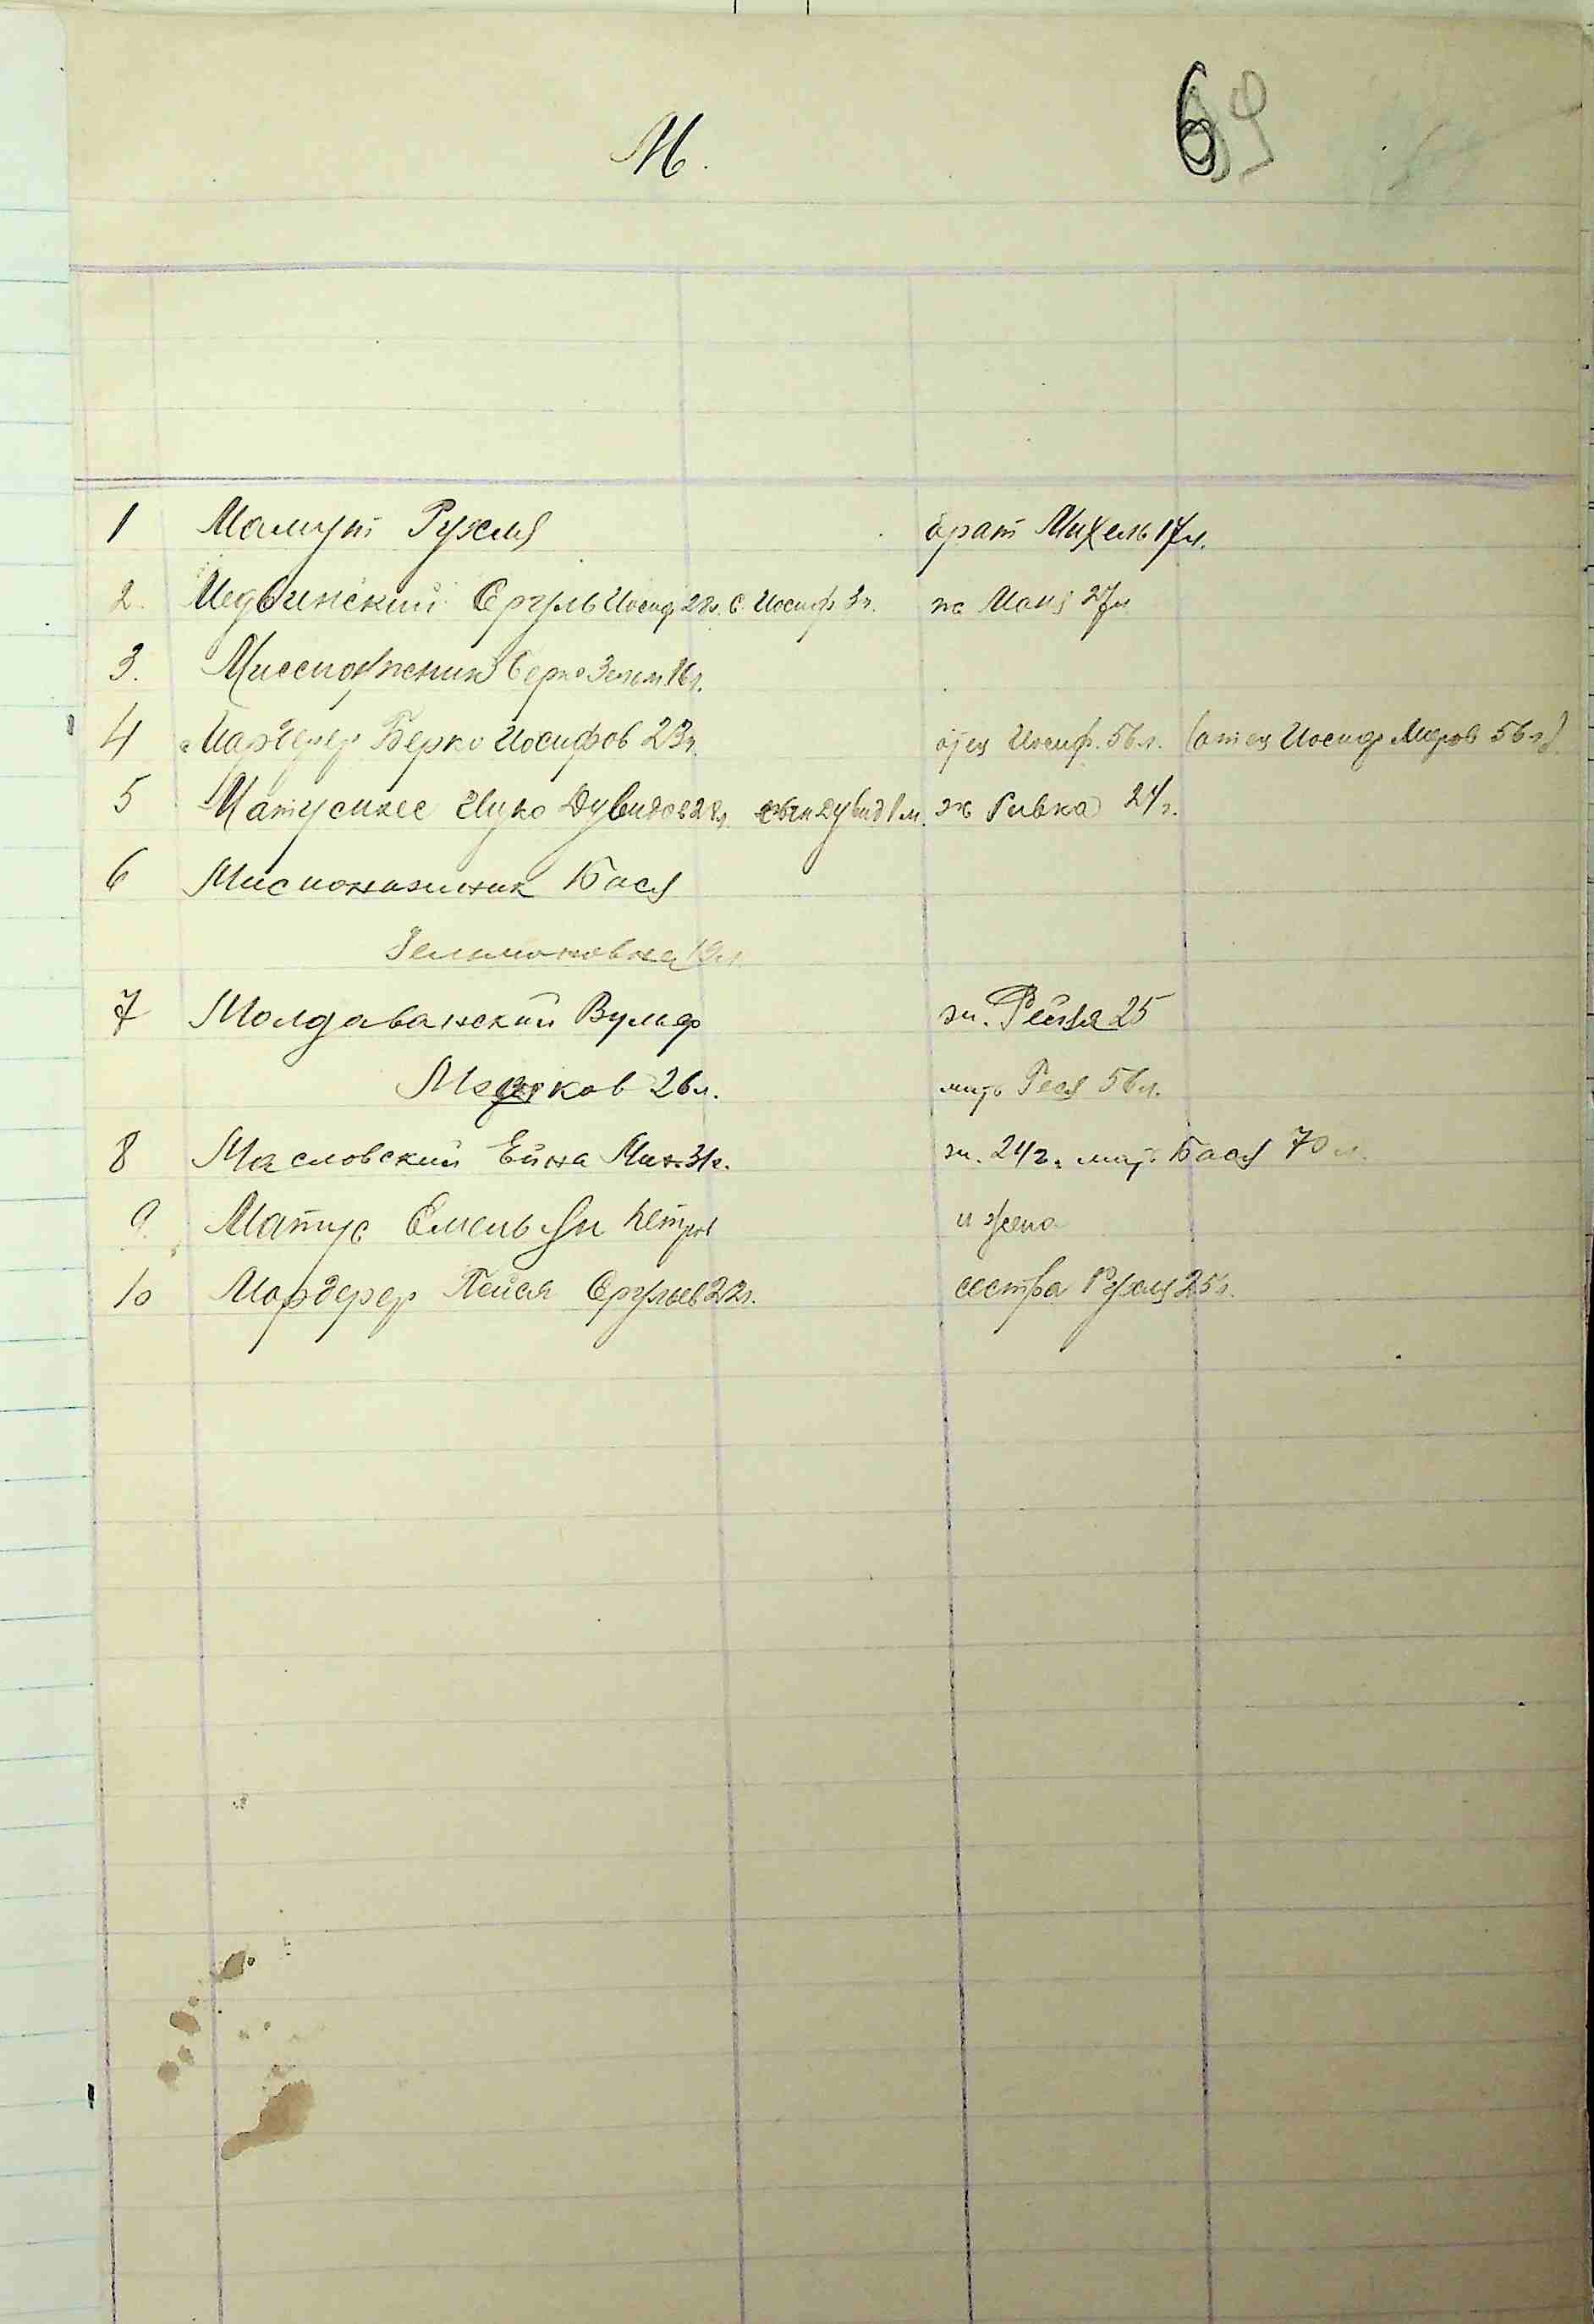 М.
69
1 Мамут Рухля брат Михель 17 л.
2. Медвинский Сруль Иосиф 28л. с. Иосиф 3г. ж Маня 27л.
3. Миссиожник Берко Зельм 16л.
4 Мардерер Берко Иосифов 23г. отец Иосиф. 56 л. (отец Иосиф Меров 56 л).
5 Матусинес Ицко Дувидов 28л. сын Дувид 1 м. ж Ривка 24г.
6 Мисионжник Бася
Зельмоновна 19л.
7 Молдаванский Вульф ж. Рейзя 25
Мошков 26л. мать Реся 56л.
8 Масловский Ейна Мих. 31г. ж. 24г. мать Бася 70 л.
9. Матус Емельян Петров и жена
10 Мардерер Пейся Срулев 22г. сестра Рухля 25л.